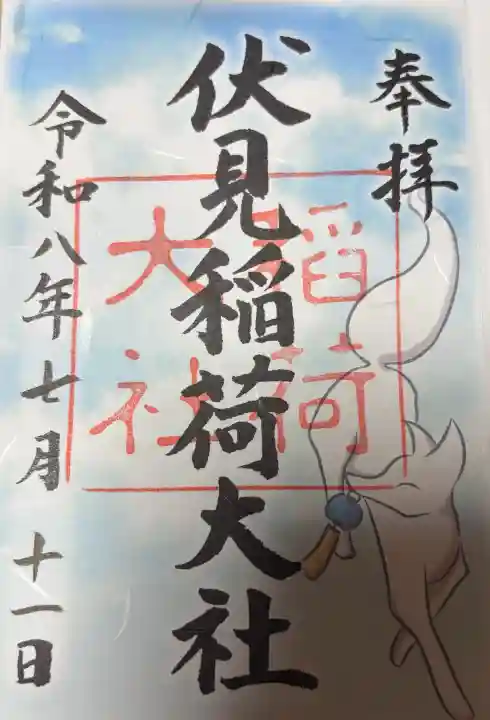 奉拝
伏見稲荷大社
稲荷
大社
令和八年七月十一日